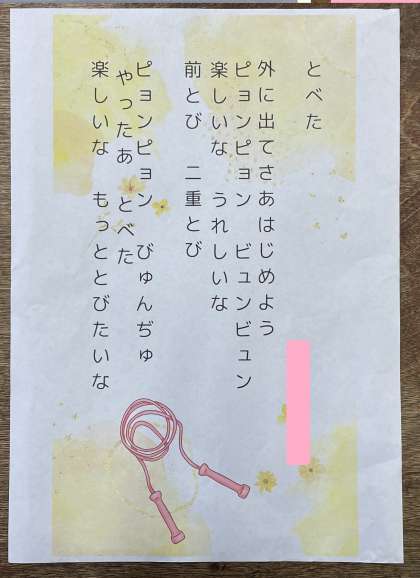 とべた
外に出てさあはじめよう
ピョンピョン　ビュンビュン
楽しいな　うれしいな
前とび　二重とび
ピョンピョン　びゅんぢゅ
やったあ　とべた
楽しいな　もっととびたいな